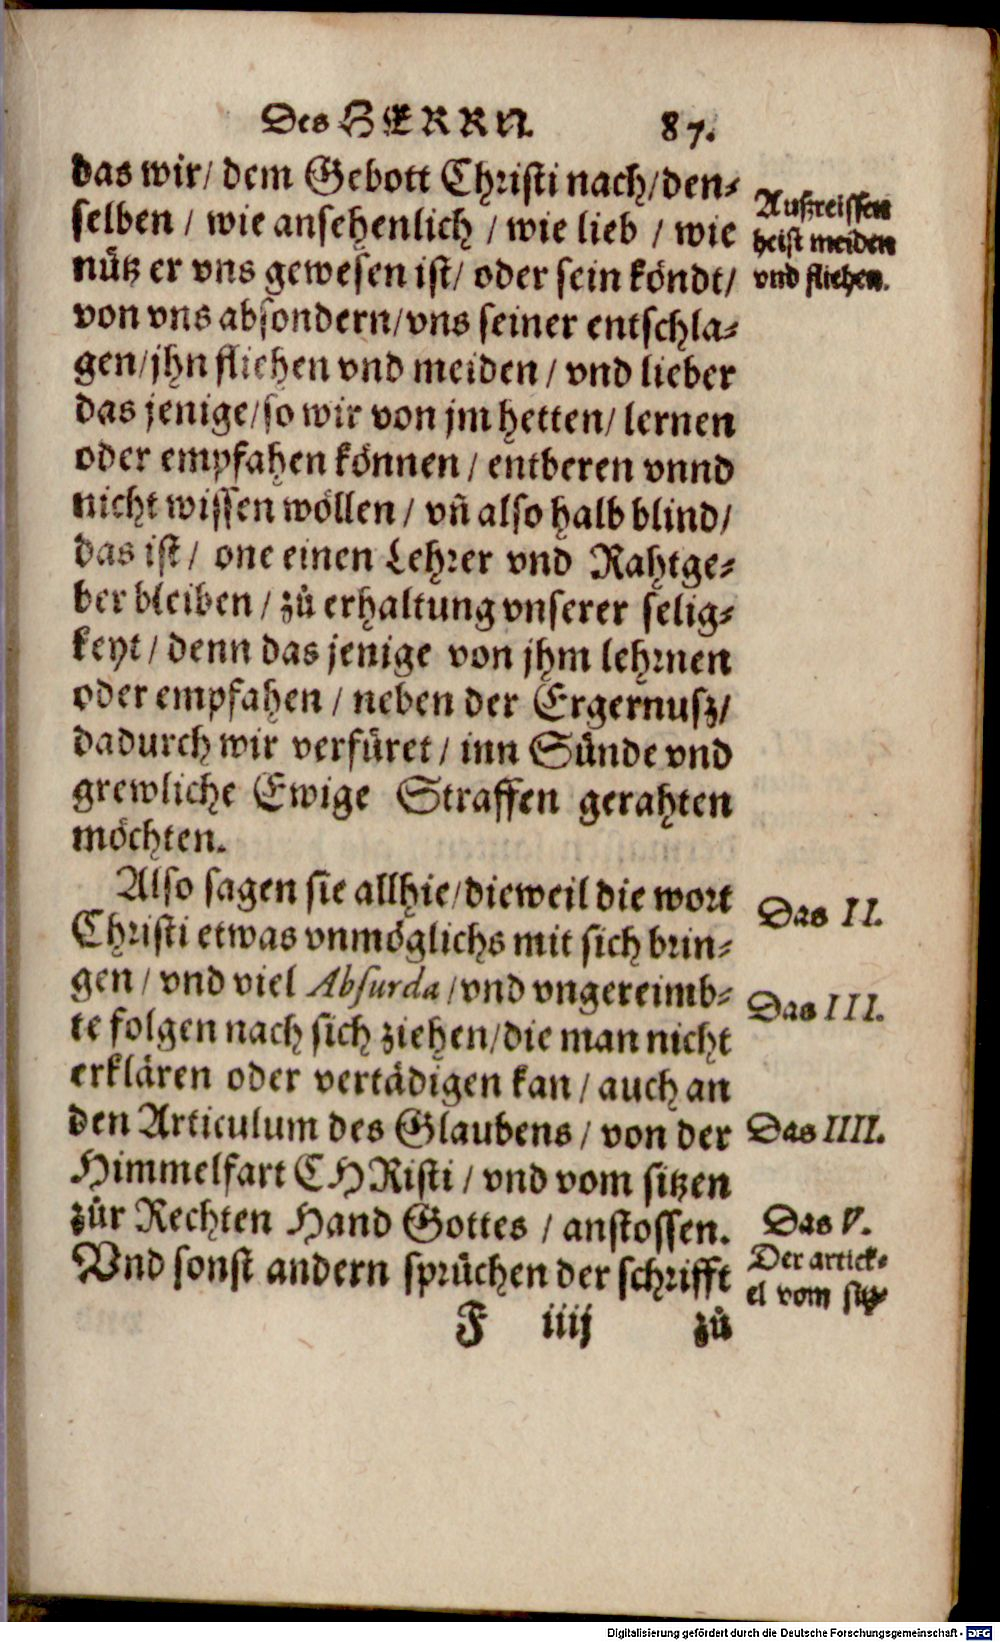 Des HERRN. 87.
das wir/ dem Gebott Christi nach/den-
selben / wie ansehenlich / wie lieb / wie
nütz er vns gewesen ist/ oder sein köndt/
von vns absondern/vns seiner entschla-
gen/jhn fliehen vnd meiden / vnd lieber
das jenige/so wir von jm hetten/ lernen
oder empfahen können / entberen vnnd
nicht wissen wöllen / vñ also halb blind/
das ist / one einen Lehrer vnd Rahtge-
ber bleiben / zů erhaltung vnserer selig-
keyt / denn das jenige von jhm lehrnen
oder empfahen / neben der Ergernusz/
dadurch wir verfüret / inn Sünde vnd
grewliche Ewige Straffen gerahten
möchten.
Außreissen
heist meiden
vnd fliehen.
Also sagen sie allhie/dieweil die wort
Christi etwas vnmöglichs mit sich brin-
gen / vnd viel Absurda /vnd vngereimb-
te folgen nach sich ziehen/die man nicht
erklären oder vertädigen kan / auch an
den Articulum des Glaubens / von der
Himmelfart CHRisti / vnd vom sitzen
zůr Rechten Hand Gottes / anstossen.
Vnd sonst andern sprüchen der schrifft
Das II.
Das III.
Das IIII.
Das V.
Der artick-
el vom sitz-
F iiij zů
Digitalisierung gefördert durch die Deutsche Forschungsgemeinschaft - DFG